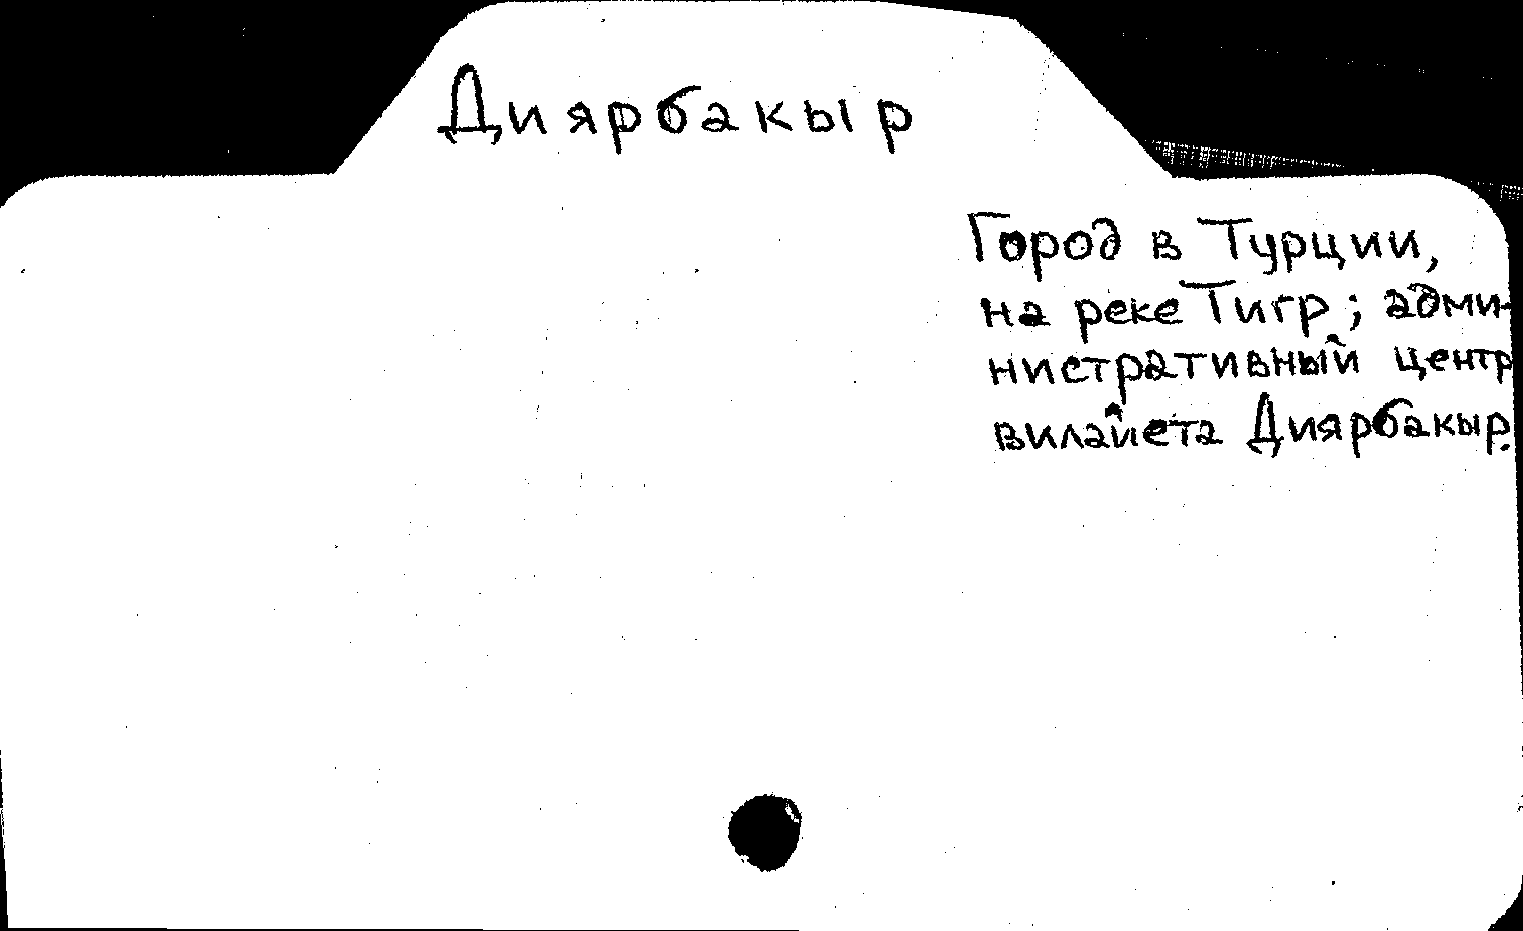 Диярбакыр
Город в Турции,
на реке Тигр; адми-
нистративный центр
вилайета Диярбакыр.